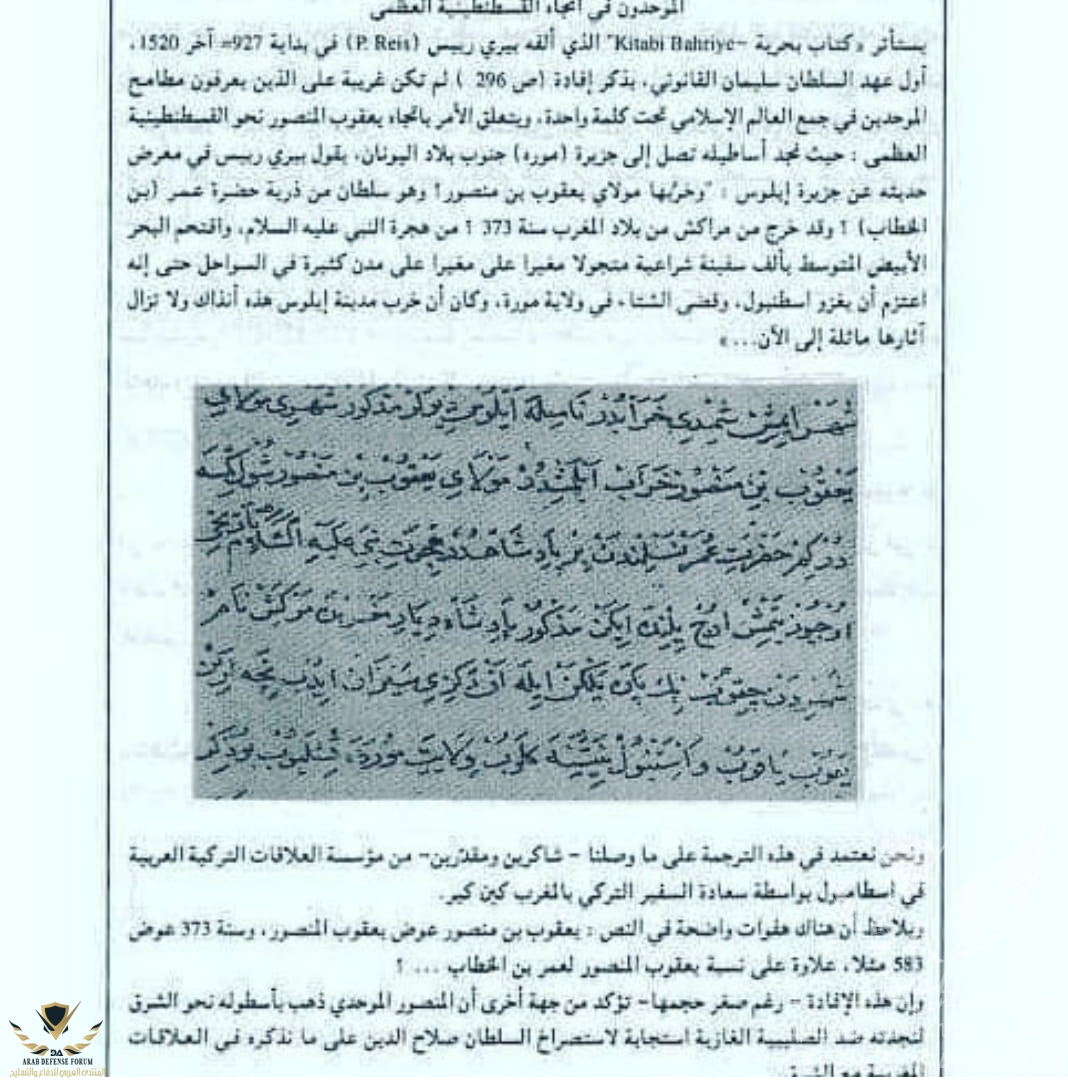 الموحدون في اتجاه القسطنطينية العظمى
يستأثر «كتاب بحرية –Kitabi Bahriye" الذي ألفه بيري رييس (P. Reis) في بداية 927= آخر 1520،
أول عهد السلطان سليمان القانوني، بذكر إفادة (ص 296 ) لم تكن غريبة على الذين يعرفون مطامح
الموحدين في جمع العالم الإسلامي تحت كلمة واحدة، ويتعلق الأمر باتجاه يعقوب المنصور نحو القسطنطينية
العظمى : حيث نجد أساطيله تصل إلى جزيرة (موره) جنوب بلاد اليونان، يقول بيري رييس في معرض
حديثه عن جزيرة إيلوس : "وخربها مولاي يعقوب بن منصور! وهو سلطان من ذرية حضرة عمر (بن
الخطاب) ! وقد خرج من مراكش من بلاد المغرب سنة 373 ! من هجرة النبي عليه السلام، واقتحم البحر
الأبيض المتوسط بألف سفينة شراعية متجولا مغيرا على مغيرا على مدن كثيرة في السواحل حتى إنه
اعتزم أن يغزو اسطنبول، وقضى الشتاء في ولاية مورة، وكان أن خرب مدينة إيلوس هذه آنذاك ولا تزال
آثارها ماثلة إلى الآن...»
شهر ايمش شمدي خرابدر مذكور شهري مولاي
يعقوب بن منصور خراب مولاي يعقوب بن منصور
حضرت عمر نسلندن بر پادشاهدر هجرت نبي عليه السلام
ايكن مذكور پادشاه ديار مغربدن مركش نام
شهردن چقوب بيك يلكن ايله
واستنبول نيتنه كلوب ولايت موره
ونحن نعتمد في هذه الترجمة على ما وصلنا – شاكرين ومقدرين– من مؤسسة العلاقات التركية العربية
في اسطامبول بواسطة سعادة السفير التركي بالمغرب كين كير.
ويلاحظ أن هناك هفوات واضحة في النص : يعقوب بن منصور عوض يعقوب المنصور، وسنة 373 عوض
583 مثلا، علاوة على نسبة يعقوب المنصور لعمر بن الخطاب ... !
وإن هذه الإفادة – رغم صغر حجمها– تؤكد من جهة أخرى أن المنصور الموحدي ذهب بأسطوله نحو الشرق
لنجدته ضد الصليبية الغازية استجابة لاستصراخ السلطان صلاح الدين على ما نذكره في العلاقات
المغربية مع الشرق.
DA
ARAB DEFENSE FORUM
المنتدى العربي للدفاع والتسليح